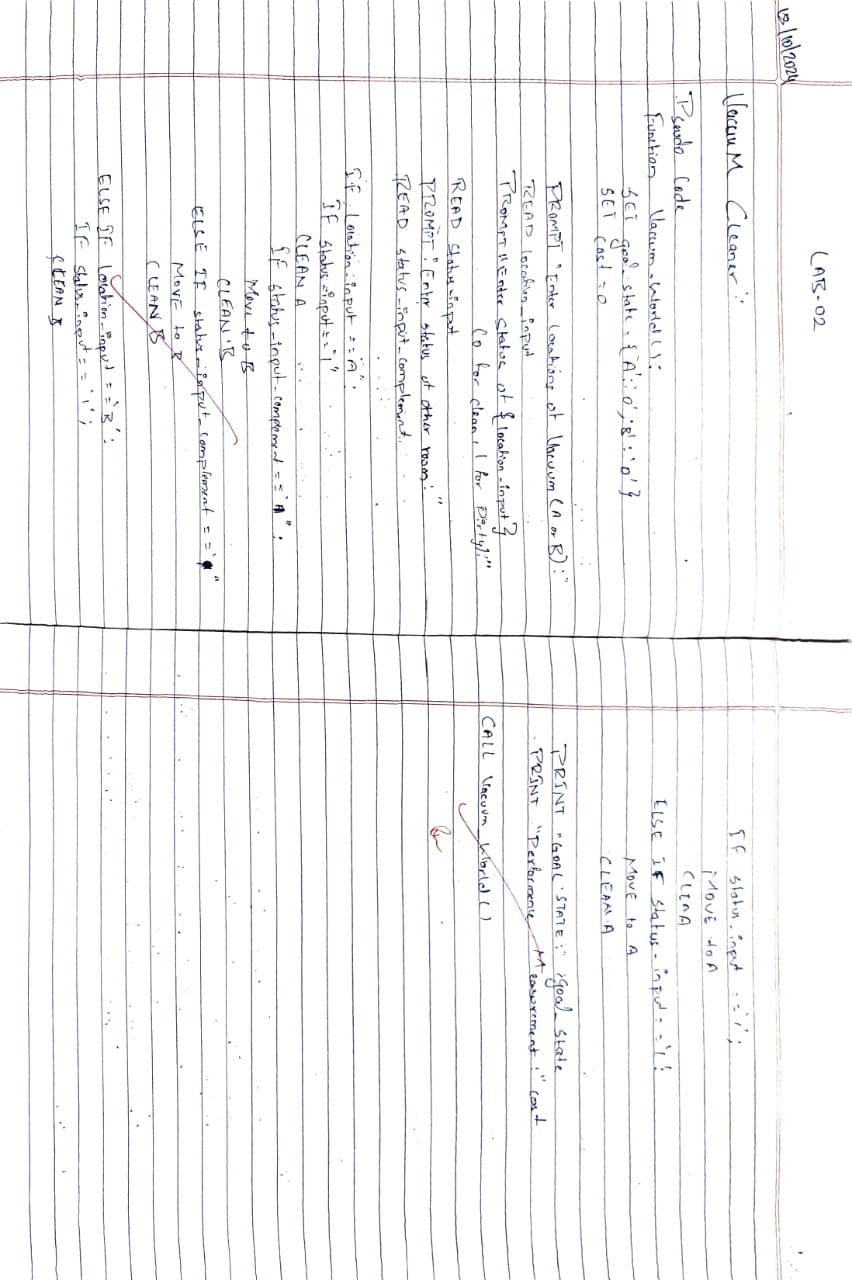 LAB-02
18/10/2024
Vaccum Cleaner:
Pseudo Code
Function Vacuum-World():
SET goal_state = {'A':'0','B':'0'}
SET Cost = 0
PROMPT "Enter Location of Vacuum (A or B):"
READ location_input
PROMPT "Enter Status of ${location_input}
(0 for clean, 1 for Dirty):"
READ Status-input
PROMPT: "Enter status of other room:"
READ status_input-complement.
IF location-input == 'A':
IF status-input == '1'
CLEAN A
IF status-input-complement == 'A':
Move to B
CLEAN B
ELSE IF status-input-complement ==
MOVE to B
CLEAN B
ELSE IF location_input == 'B':
IF status_input == '1';
CLEAN B
IF status-input == '1';
MOVE to A
CLEAA
ELSE IF status-input == '1:
MOVE to A
CLEAN A
PRINT "GOAL STATE:", goal_state
PRINT "Performance Measurement:" cost
CALL Vacuum_World()